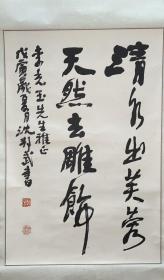 清水出芙蓉
天然去雕飾
李先玉先生雅正
戊寅歲夏月沈彭武書